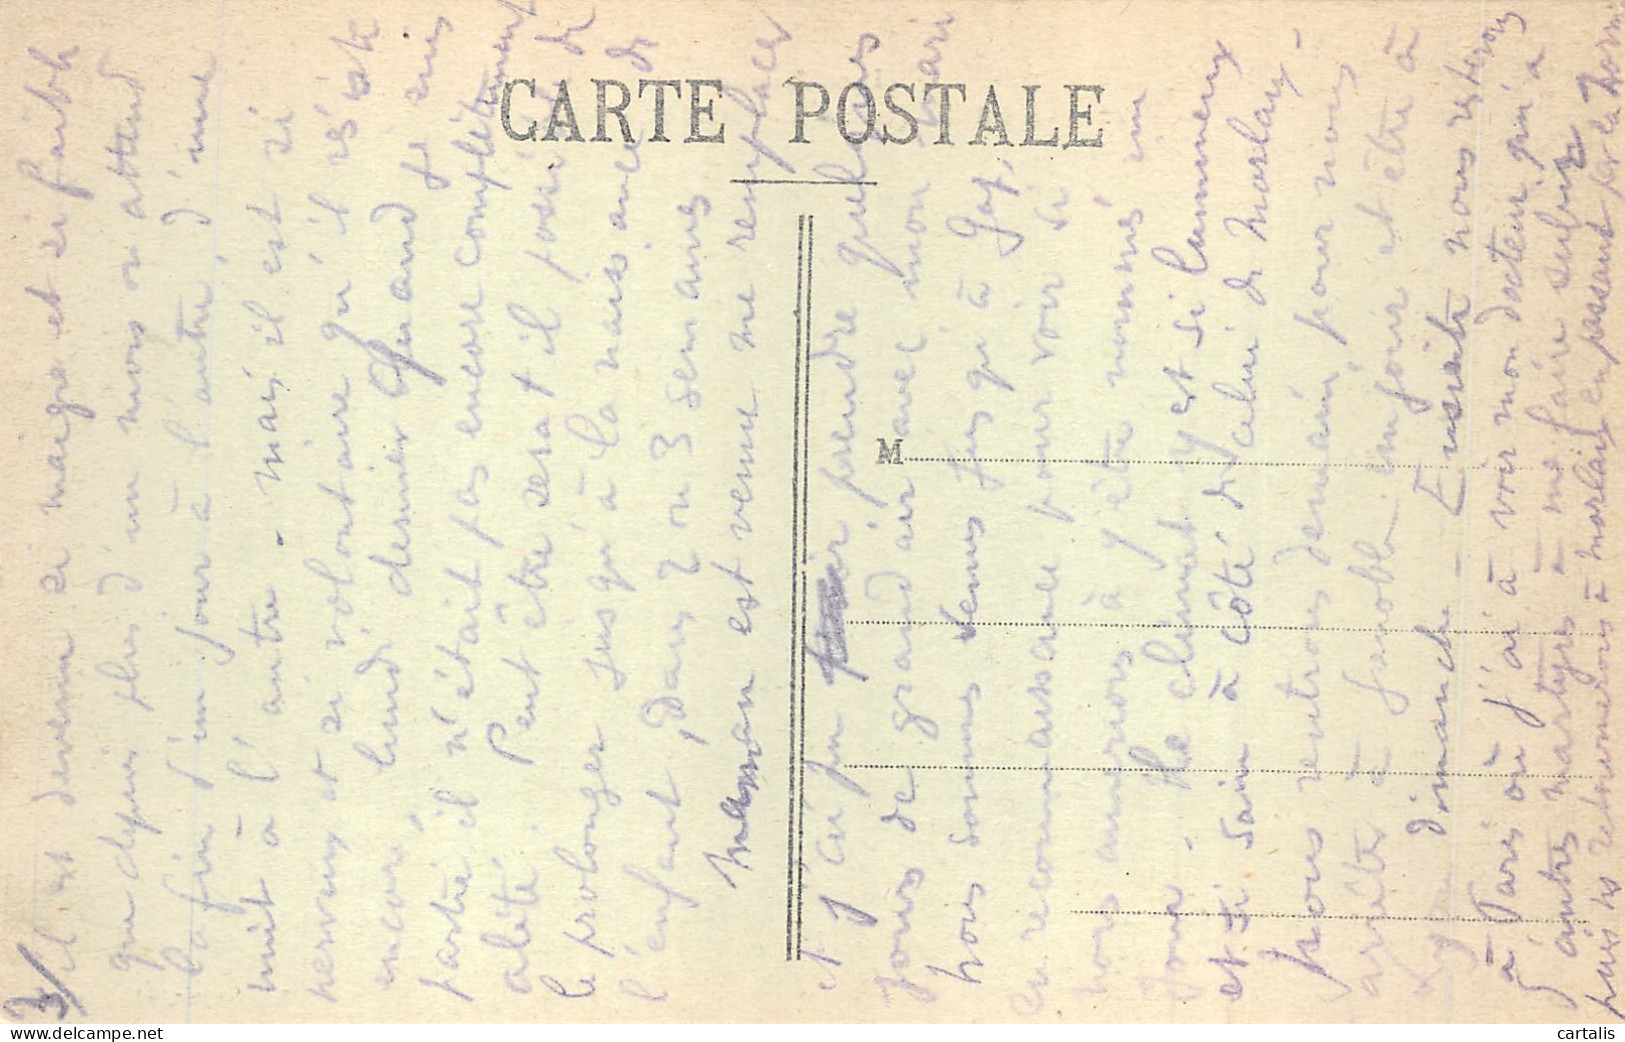 CARTE POSTALE
M
3/ il est devenu si maigre et si faible
que depuis plus d'un mois on attend
la fin d'un jour à l'autre, d'une
nuit à l'autre - mais il est si
nerveux et si volontaire qu'il résiste
encore, lundi dernier quand je suis
partie il n'était pas encore complètement
alité. Peut être sera t il possible de
le prolonger jusqu'à la naissance de
l'enfant, dans 2 ou 3 semaines
maman est venue me remplacer
et j'ai pu prendre quelques
jours de grand air avec mon mari
nous sommes venus jusqu'à Gap,
en reconnaissance pour voir si
nous aimerions à y être nommés un
jour. Le climat y est si lumineux
et si sain à côté de celui de Morlaix -
nous rentrons demain, pour nous
arrêter à Grenoble un jour et être à
dimanche - Ensuite nous resterons
à Paris où j'ai à voir mon docteur qui a
d'autres martyrs à me faire subir
puis retournerons à Morlaix en passant par la
cartalis